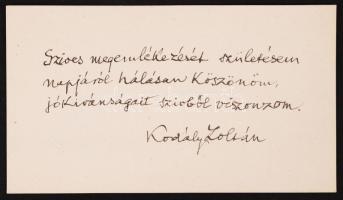 Szives megemlékezését születésem
napjáról hálásan köszönöm,
jókivánságait szivből viszonzom.
Kodály Zoltán